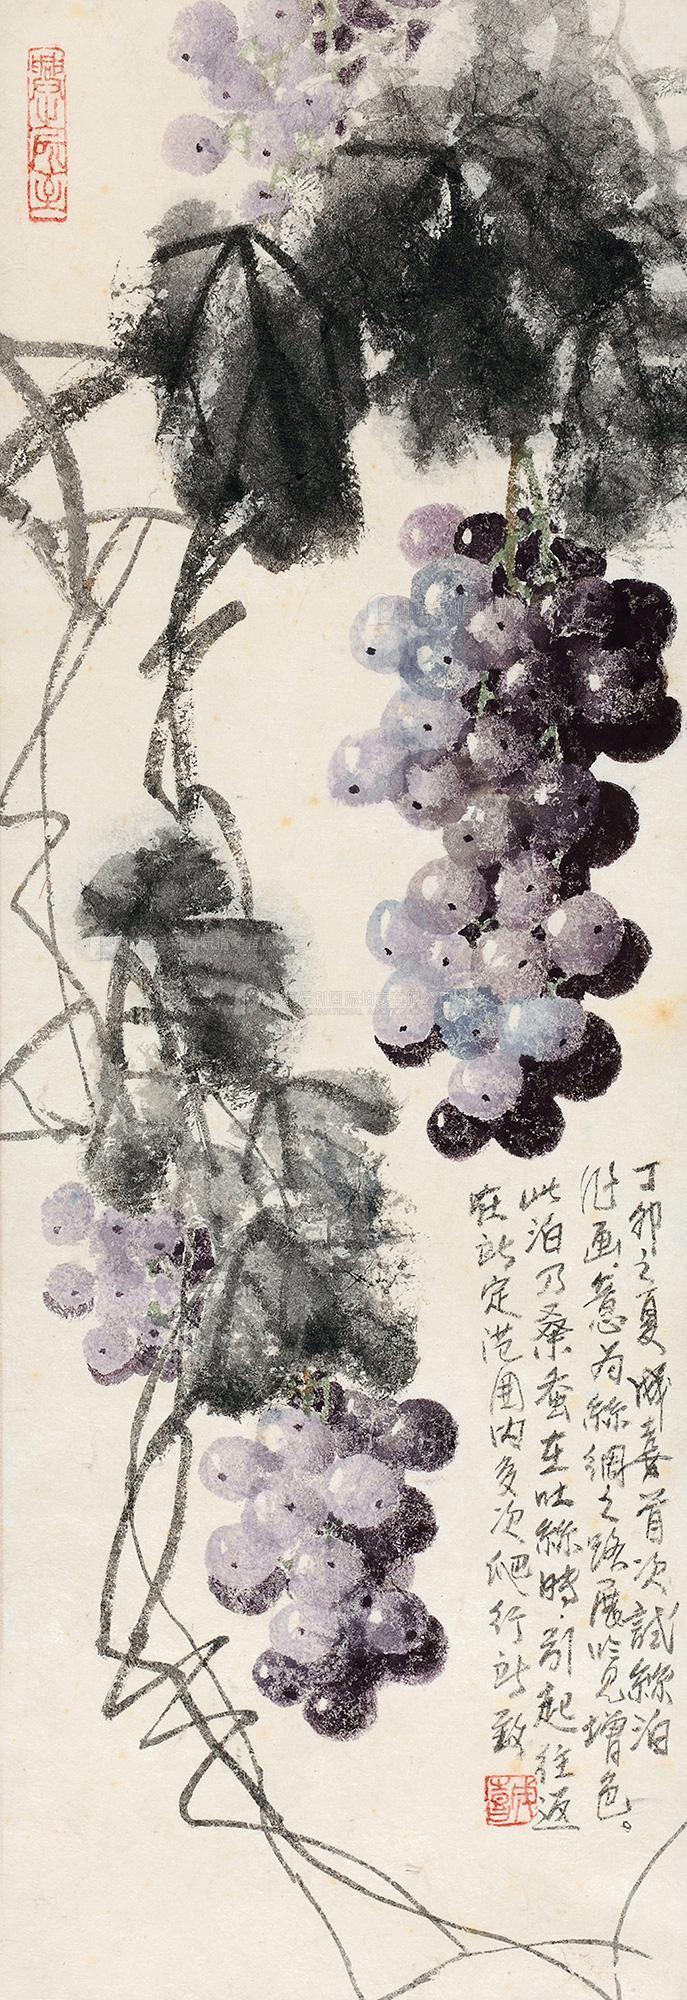 丁卯之夏 喜首次試絲泊
作画意为絲綢之路展览增色。
此泊乃桑蚕在吐絲時引起往返
在所定范围内多次爬行所致